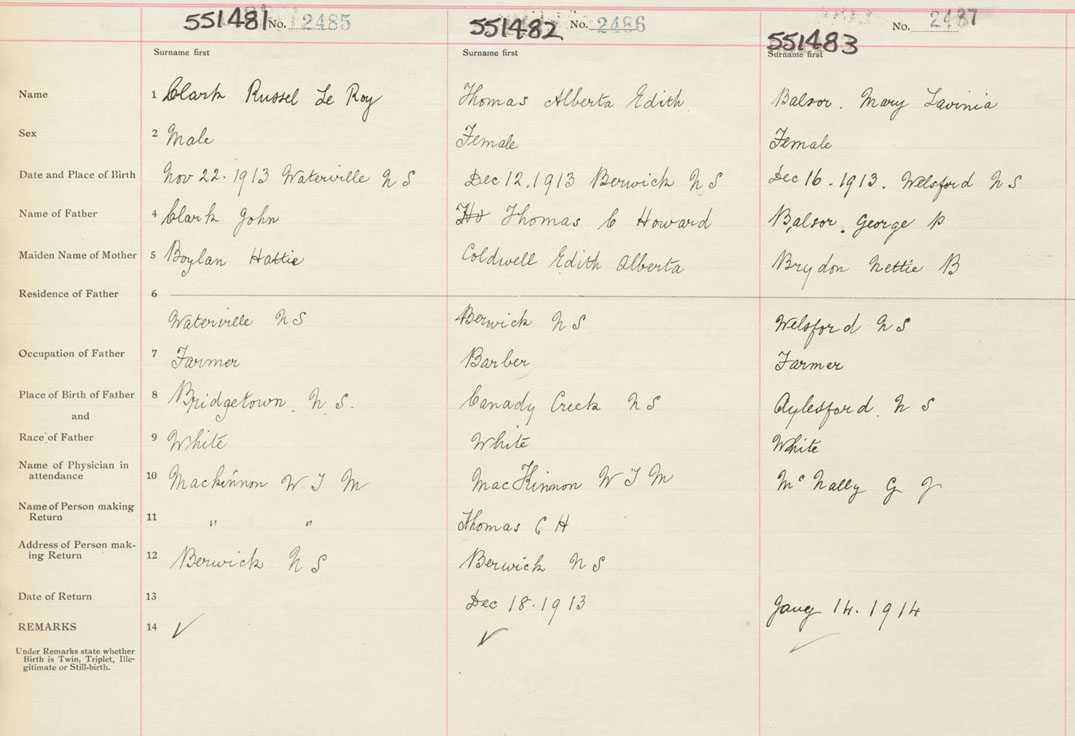 551481 No. 2485 551482 No. 2486 551483 No. 2487
Surname first Surname first Surname first
Name 1 Clark Russel Le Roy Thomas Alberta Edith Balsor. Mary Lavinia
Sex 2 Male Female Female
Date and Place of Birth 3 Nov 22. 1913 Waterville N S Dec 12. 1913 Berwick N S Dec 16. 1913. Welsford N S
Name of Father 4 Clark John Ho Thomas C Howard Balsor. George P
Maiden Name of Mother 5 Boylan Hattie Coldwell Edith Alberta Brydon Nettie B
Residence of Father 6
Waterville N S Berwick N S Welsford N S
Occupation of Father 7 Farmer Barber Farmer
Place of Birth of Father 8 Bridgetown. N. S. Canady Creek N S Aylesford. N S
and
Race of Father 9 White White White
Name of Physician in
attendance 10 Mackinnon W J M MacKinnon W J M McNally G J
Name of Person making
Return 11 " " Thomas C H
Address of Person mak-
ing Return 12 Berwick N S Berwick N S
Date of Return 13 Dec 18. 1913 Jany 14. 1914
REMARKS 14 ✓ ✓ ✓
Under Remarks state whether
Birth is Twin, Triplet, Ille-
gitimate or Still-birth.